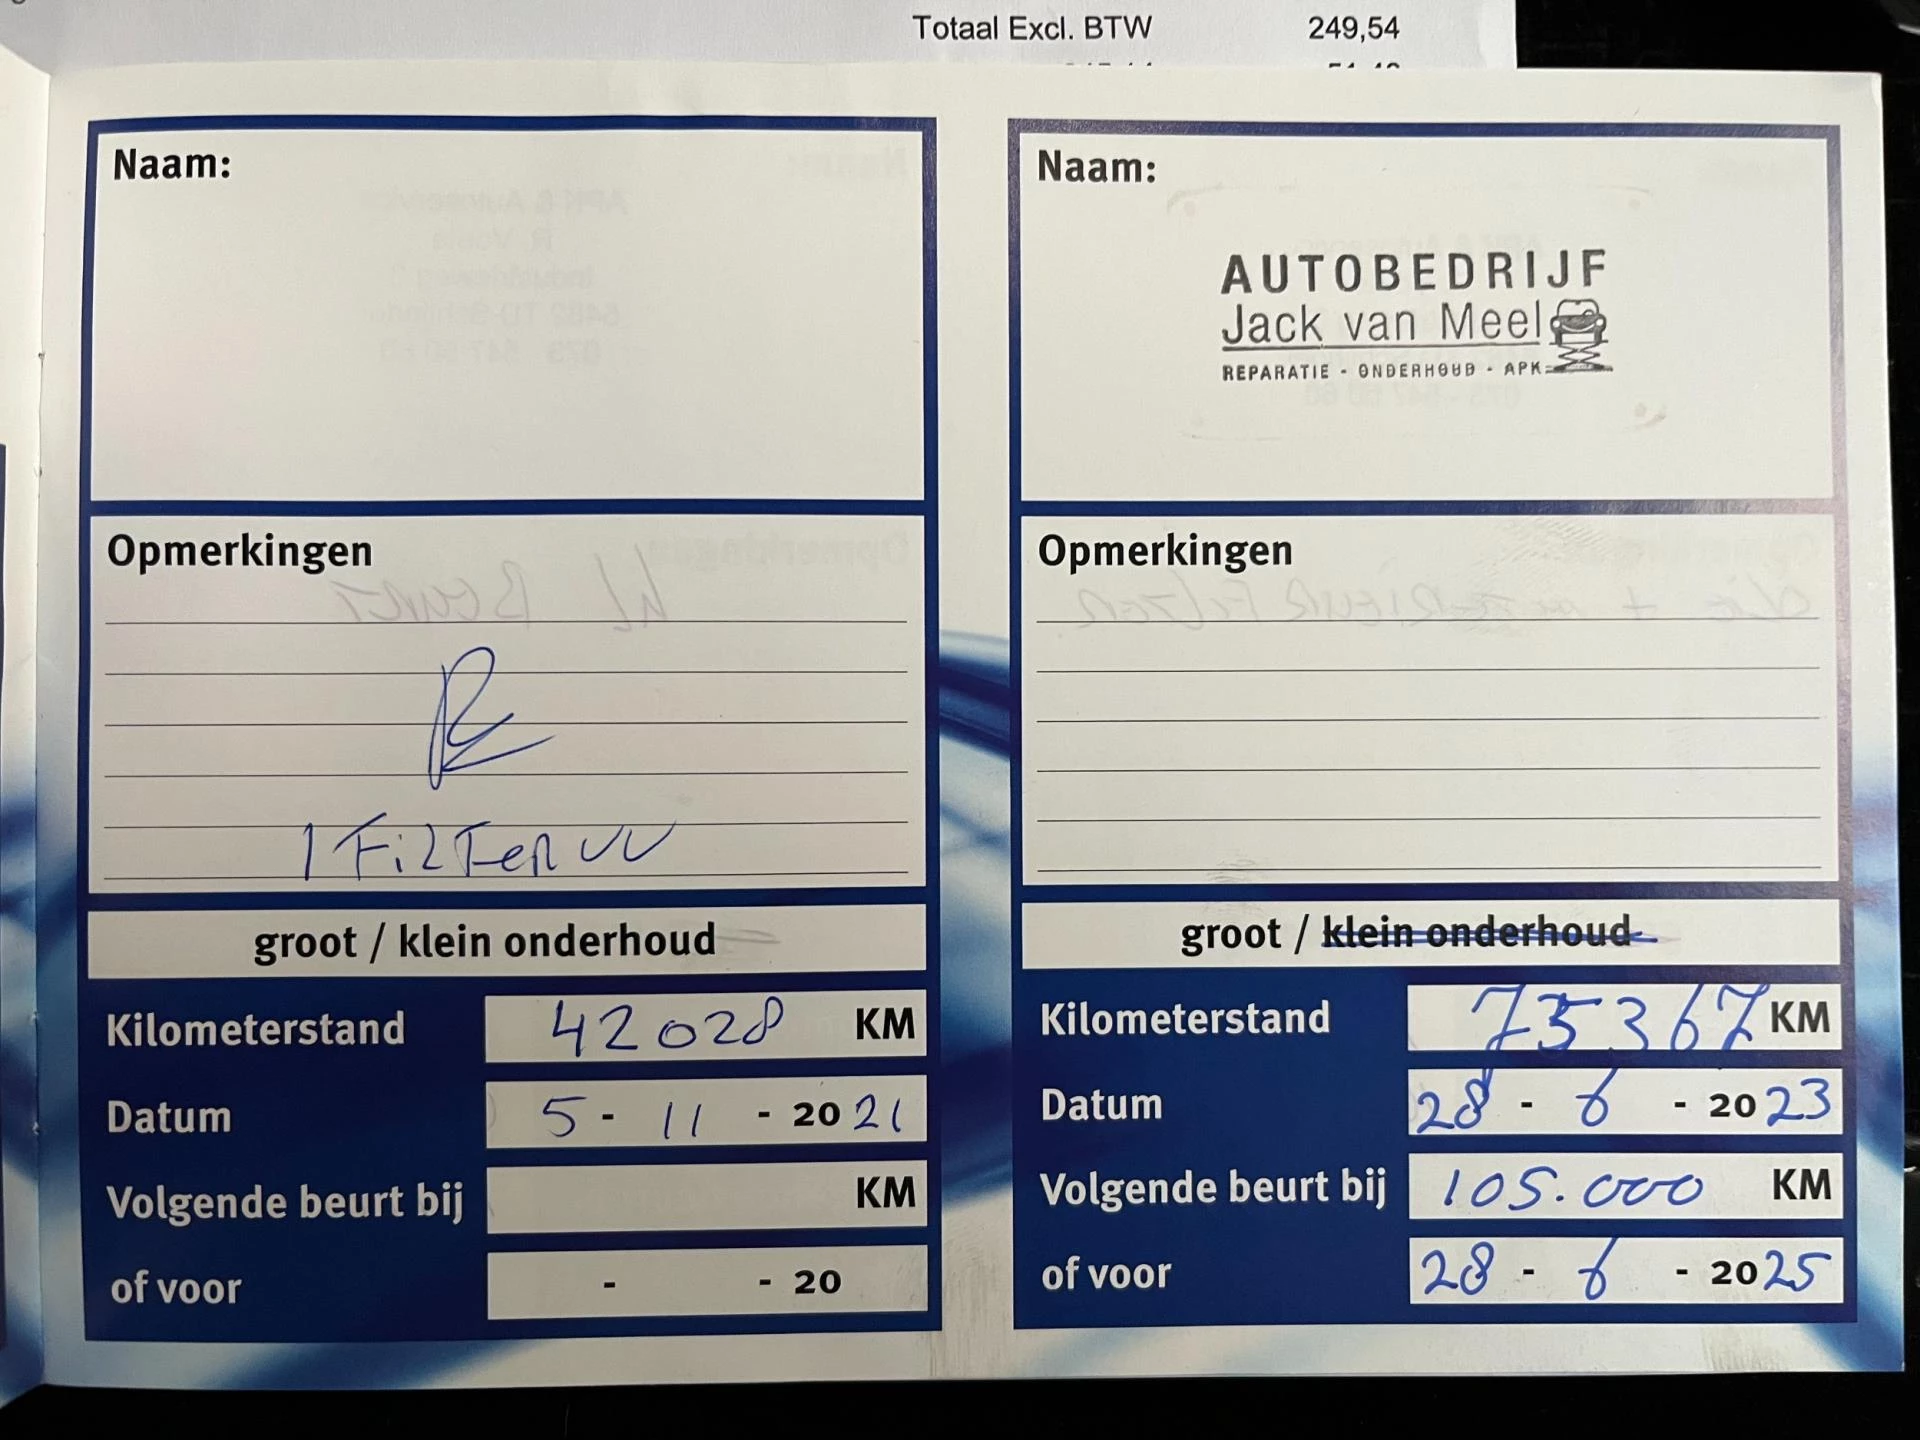 Totaal Excl. BTW 249,54
Naam:
Opmerkingen
1 Filter
groot / klein onderhoud
Kilometerstand 42028 KM
Datum 5 - 11 - 2021
Volgende beurt bij KM
of voor - - 20
Naam:
AUTOBEDRIJF
Jack van Meel
REPARATIE - ONDERHOUD - APK
Opmerkingen
groot / klein onderhoud
Kilometerstand 75367 KM
Datum 28 - 6 - 2023
Volgende beurt bij 105.000 KM
of voor 28 - 6 - 2025